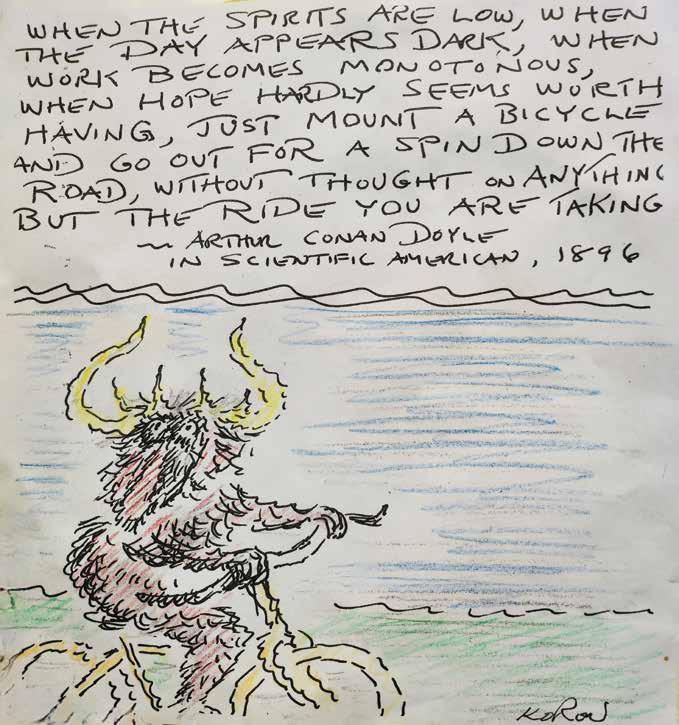 WHEN THE SPIRITS ARE LOW, WHEN
THE DAY APPEARS DARK, WHEN
WORK BECOMES MONOTONOUS,
WHEN HOPE HARDLY SEEMS WORTH
HAVING, JUST MOUNT A BICYCLE
AND GO OUT FOR A SPIN DOWN THE
ROAD, WITHOUT THOUGHT ON ANYTHING
BUT THE RIDE YOU ARE TAKING
~ ARTHUR CONAN DOYLE
IN SCIENTIFIC AMERICAN, 1896
KOREN